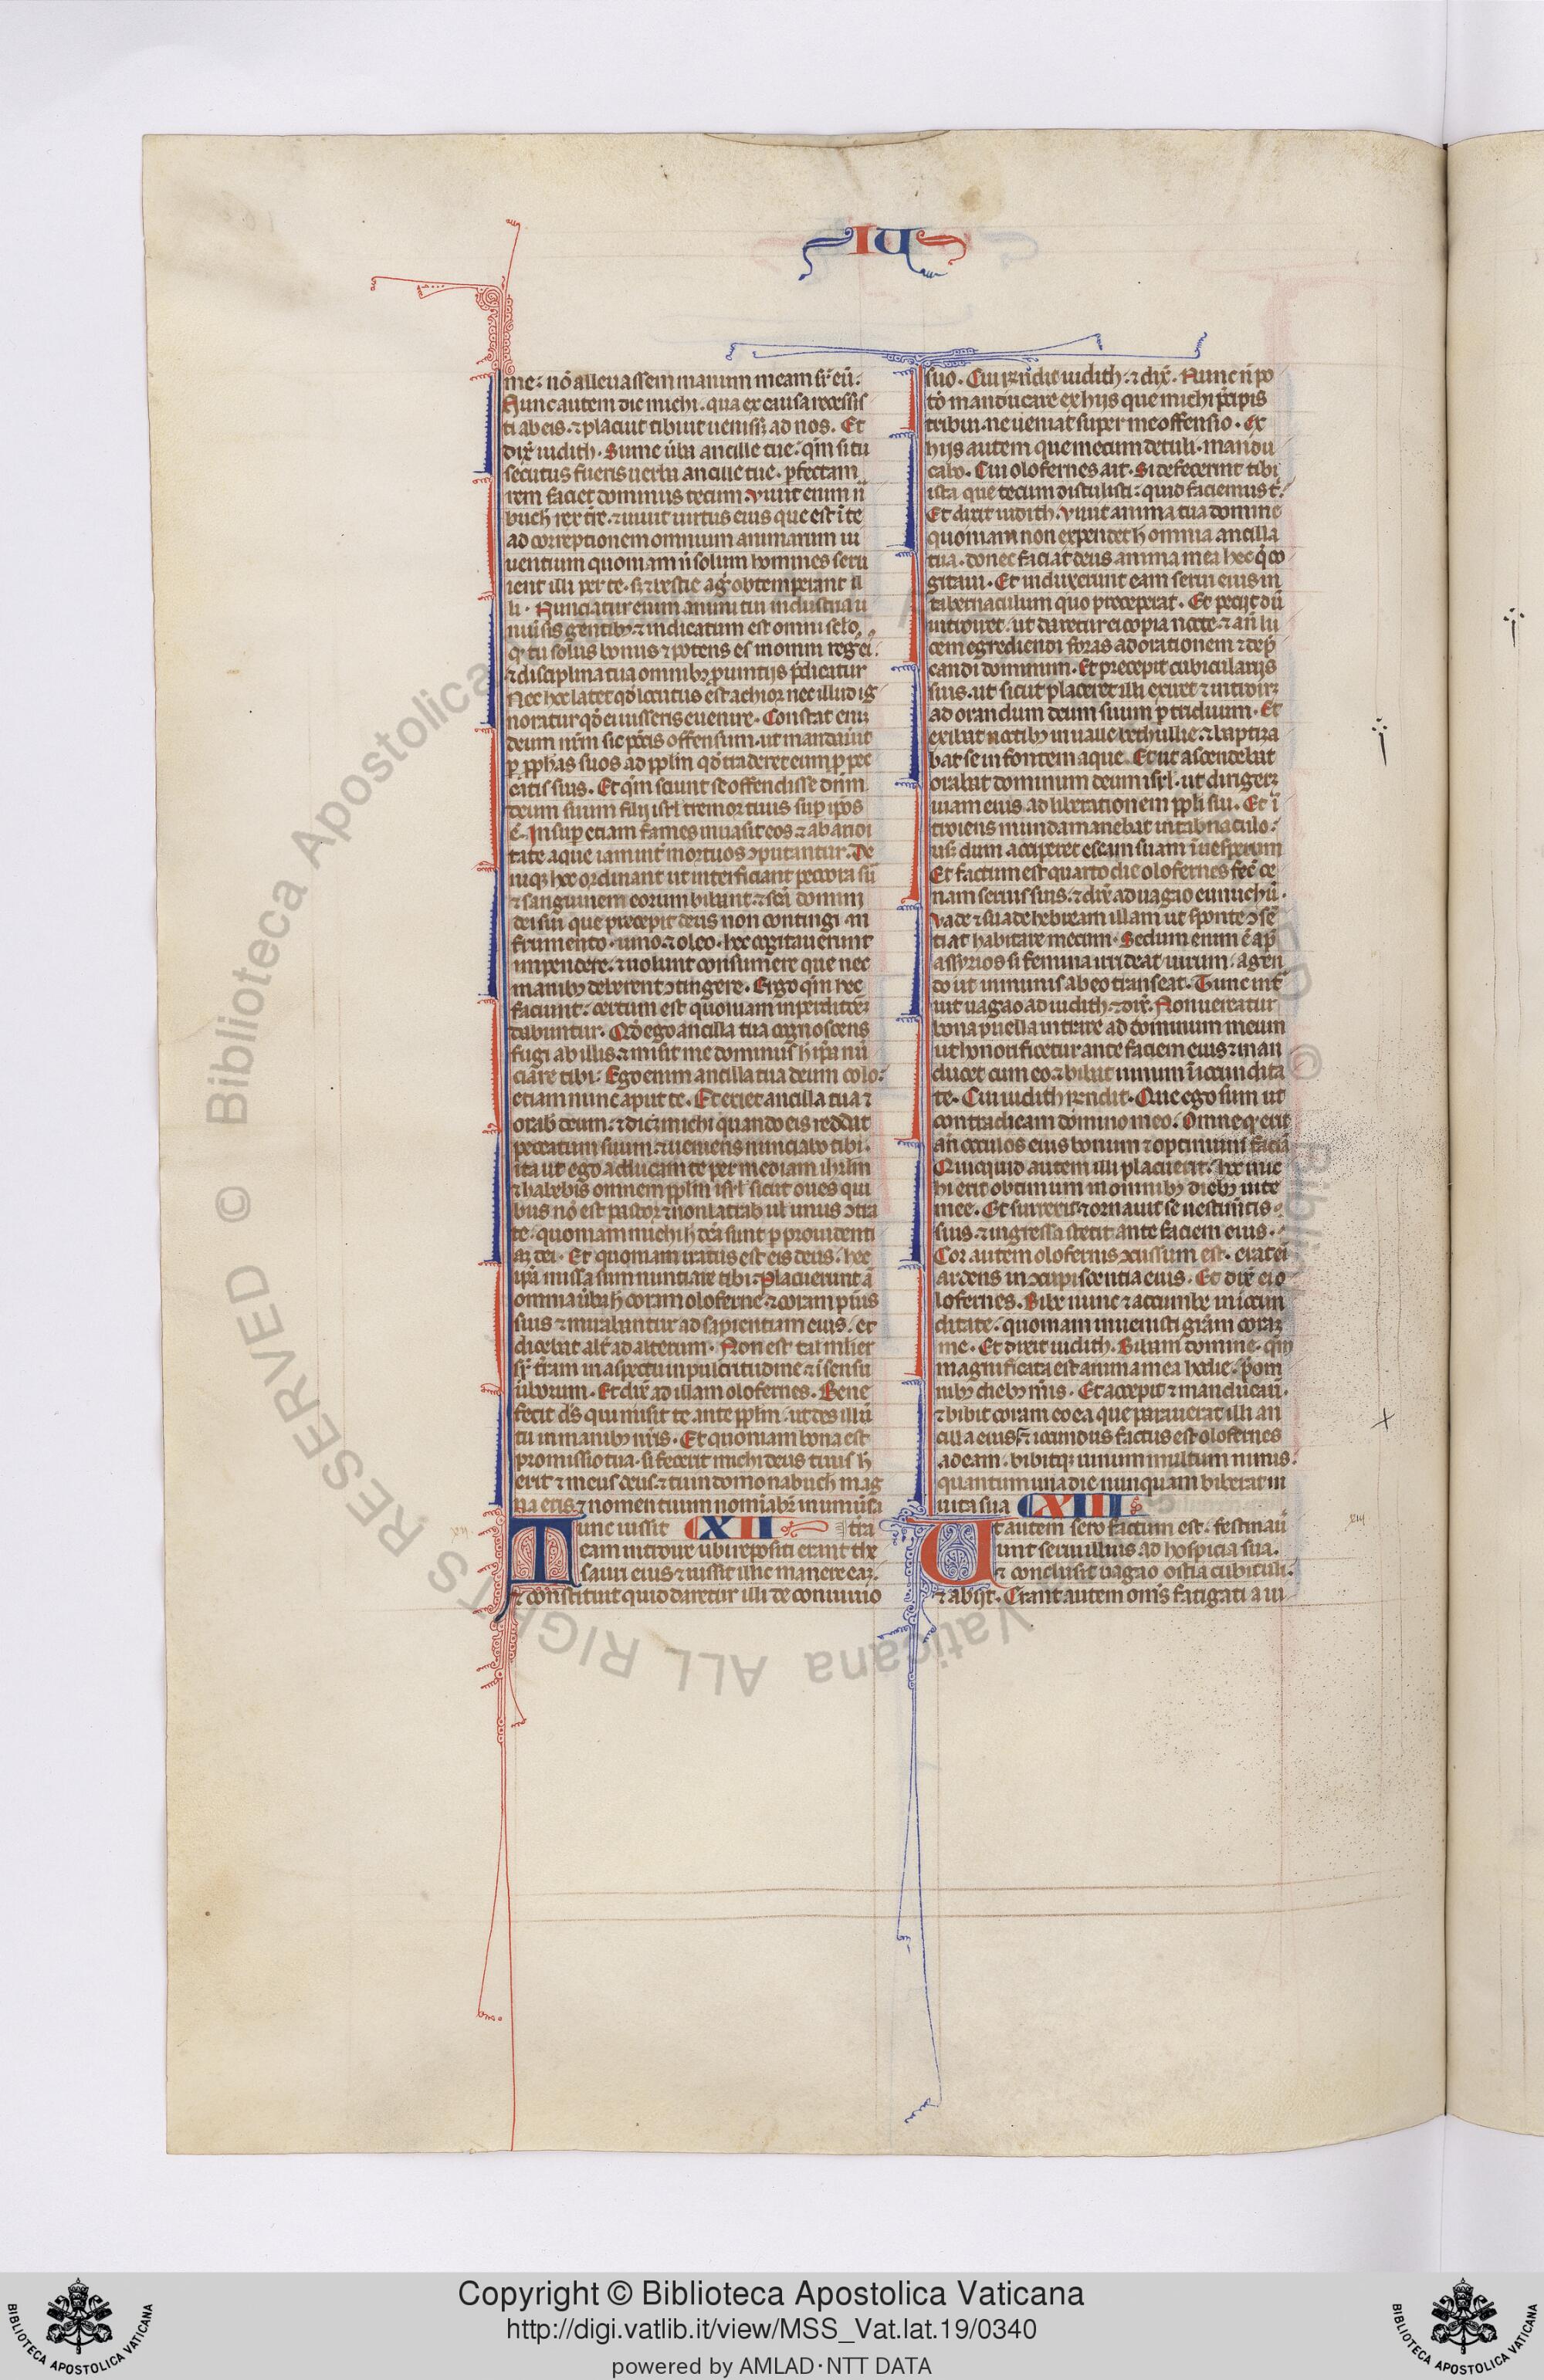 IU
me: nõ alleuassem manum meam sr̃ eũ.
Nunc autem dic michi. qua ex causa recessis
ti ab eis. ⁊ placuit tibi ut uenisꝫ ad nos. Et
dix̃ iudith. Sume ũba ancille tue: qm̃ si tu
secutus fueris uerba ancille tue. ꝑfectam
rem faciet dominus tecum. Viuit enim n̾
buch rex tr̃e. ⁊ uiuit uirtus eius que est ĩ te
ad correptionem omnium animarum ui
uentium quoniam n̾ solum homines serui
ient illi per te. sꝫ ⁊ bestie agͥ obtemperant il
li. Nunciatur enim animi tui industria u
niũsis gentibꝫ. ⁊ indicatum est omni sclo.
ꝙ tu solus bonus ⁊ potens es in omni regͦ eiꝰ.
⁊ disciplina tua omnibꝫ prouintijs p̃dicatur
Nec hec latet qđ locutus est achior nec illud ig
noratur qđ ei iusseris euenire. Constat eniꝫ
deum nr̃m sic pccͣis offensum. ut mandauit
ꝑ ꝓphãs suos ad ppl̃m qđ traderet eum ꝓ pec
catis suis. Et qm̃ sciunt se offendisse dñm
deum suum filij isrl̃ tremor tuus suꝑ ipos
ẽ. Insuꝑ etiam fames inuasit eos ⁊ ab aridi
tate aque iam int̾ mortuos ɔputantur. De
niqꝫ hec ordinant ut interficiant pecora suã
⁊ sanguinem eorum bibant. ⁊ scã domini
dei sui que precepit deus non contingi. in
frumento. uino. ⁊ oleo. hec cogitauerunt
impendere. ⁊ uolunt consumere que nec
manibꝫ deberent ɔtingere. Ergo qm̃ hec
faciunt: certum est quoniam in perditioneꝫ
dabuntur. Qđ ego ancilla tua cognoscens
fugi ab illis. ⁊ misit me dominus h̾ ip̃a nũ
ciare tibi. Ego enim ancilla tua deum colo:
etiam nunc aput te. Et exiet ancilla tua ⁊
orab̾ deum: ⁊ dicet michi quando eis reddat
peccatum suum. ⁊ ueniens nunciabo tibi.
ita ut ego adducam te per mediam ihrlm̃
⁊ habebis omnem ppl̃m isrl̃ sicut oues qui
bus nõ est pastor ⁊ non latrab̾ ul̾ unus ɔtra
te. quoniam michi h̾ dc̃a sunt ꝑ prouidenti
aꝫ dei. Et quoniam iratus est eis deus. hec
ip̃a missa sum nuntiare tibi. Placuerunt aͣ
omnia ũba h̾ coram oloferne. ⁊ coram pueris
suis ⁊ mirabantur ad sapientiam eius. et
dicebat alt̾ ad alterum. Non est tal̾ mulier
sr̃ tr̃am in aspectu in pulcritudine ⁊ ĩ sensu
ũborum. Et dix̃ ad illam olofernes. Bene
fecit ds̃ qui misit te ante ppl̃m. ut des illũ
tu in manibꝫ nr̃is. Et quoniam bona est
promissio tua. si fecerit michi deus tuus h̾
erit ⁊ meus deus. ⁊ tu in domo nabuch̾ mag
na eris. ⁊ nomen tuum nomĩabiͭ in uniũsa
Tunc iussit CXII tr̃a
eam introire ubi repositi erant the
sauri eius ⁊ iussit illic manere eaꝫ.
⁊ constituit quid daretur illi de conuiuio
suo. Cui rn̄dit iudith. ⁊ dix̃. Nunc n̾ po
to manducare ex hijs que michi p̃cipis
tribui. ne ueniat super me offensio. ex
hijs autem que mecum detuli. mandu
cabo. Cui olofernes ait. Si defecerint tibi
ista que tecum detulisti: quid faciemus t̾.
Et dixit iudith. Viuit anima tua domine
quoniam non expendet h̾ omnia ancilla
tua. donec faciat deus anima mea hec q̃ co
gitaui. Et induxerunt eam serui eius in
tabernaculum quo preceperat. Et petijt dũ
introiret. ut daretur ei copia nocte. ⁊ añ lu
cem egrediendi foras ad orationem ⁊ dep̃
candi dominum. Et precepit cubicularijs
suis. ut sicut placeret illi exiret ⁊ introirꝫ
ad orandum deum suum ꝑ triduum. Et
exibat noctibꝫ in ualle bethullie. ⁊ baptiza
bat se in fontem aque. Et ut ascendebat
orabat dominum deum isrl̃. ut dirigerꝫ
uiam eius ad liberationem ppl̃i sui. Et ĩ
troiens munda manebat in tab̾naculo:
usꝫ dum acciperet escam suam ĩ uesperum
Et factum est quarto die olofernes fec̃ ce
nam seruis suis. ⁊ dix̃ ad uagao eunuchũ.
Vade ⁊ suade hebream illam ut sponte ɔsẽ
tiat habitare mecum. Fedum enim ẽ ap̃
assyrios si femina irrideat uirum. agen
do ut inmunis ab eo transeat. Tunc int̾
uit uagao ad iudith. ⁊ dix̃. Non uereatur
bona puella intrare ad dominum meum
ut honorificetur ante faciem eius ⁊ man
ducet cum eo ⁊ bibat uinum ĩ iocundita
te. Cui iudith rn̄dit. Que ego sum ut
contradicam domino meo. Omne q̃ erit
añ oculos eius bonum ⁊ optimum faciã
Quicquid autem illi placuerit. hoc mic
hi erit obtimum in omnibꝫ diebꝫ uite
mee. Et surrexit ⁊ ornauit se uestim̃tis
suis. ⁊ ingressa stetit ante faciem eius.
Cor autem olofernis ɔcussum est. erat ei
ardens in ɔcupiscentia eius. Et dix̃ ei o
lofernes. Bibe nunc ⁊ accumbe in iocun
ditate. quoniam inuenisti gr̃am coraꝫ
me. Et dixit iudith. Bibam domine. qm̃
magnificata est anima mea hodie. p̃ om
nibꝫ diebꝫ m̃is. Et accepit ⁊ manducauͭ.
⁊ bibit coram eo ea que parauerat illi an
cilla eius. ⁊ iocundus factus est olofernes
ad eam. bibitqꝫ uinum multum nimis.
quantum una die nunquam biberat in
uita sua CXIII
Ut autem sero factum est. festinaũ
unt serui illius ad hospicia sua.
⁊ conclusit uagao ostia cubiculi.
⁊ abijt. Erant autem om̃s fatigati a ui
© Biblioteca Apostolica Vaticana ALL RIGHTS RESERVED
Copyright © Biblioteca Apostolica Vaticana
http://digi.vatlib.it/view/MSS_Vat.lat.19/0340
powered by AMLAD·NTT DATA
BIBLIOTECA APOSTOLICA VATICANA
BIBLIOTECA APOSTOLICA VATICANA